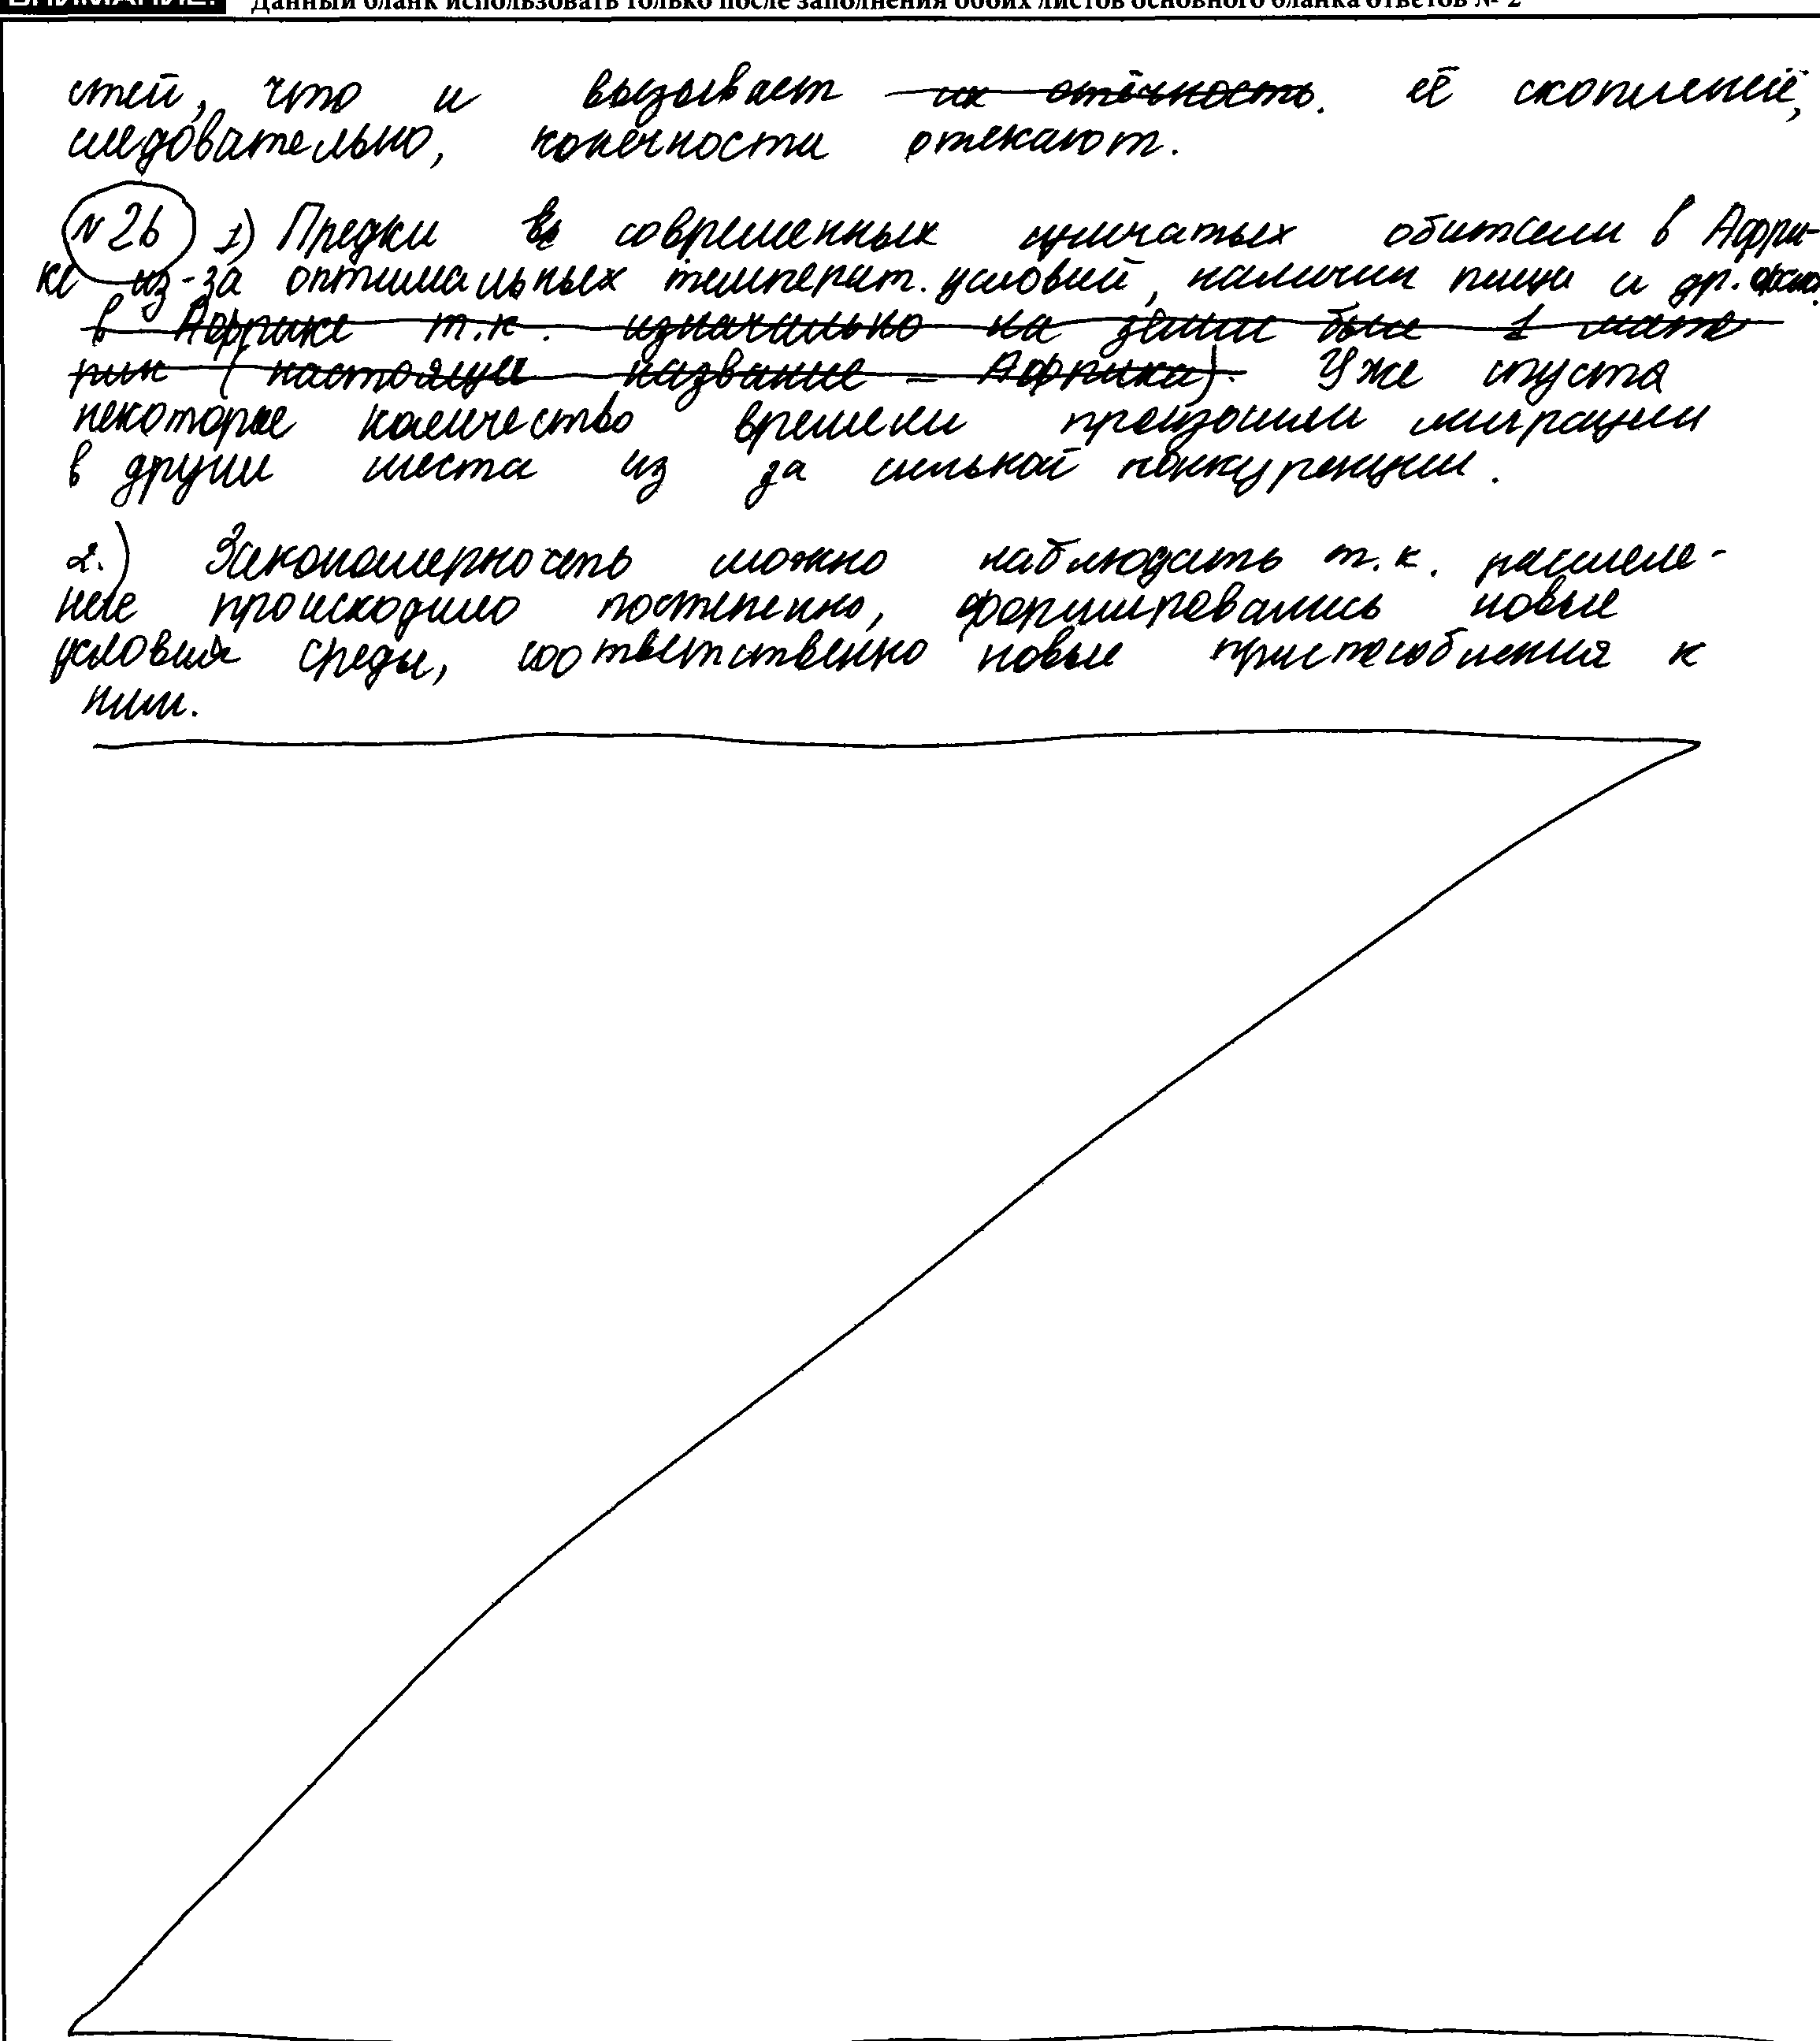 ВНИМАНИЕ! Данный бланк использовать только после заполнения обоих листов основного бланка ответов № 2
стей, что и вызывает их отёчность. её скопление,
следовательно, конечности отекают.
№ 26 1) Предки современных обитали в Афри-
ке из-за оптимальных температ. условий, наличии пищи и др.
в Африке т.к. изначально на земле был 1 мате
рик (настоящее название - Африка). Уже спустя
некоторое количество времени произошли миграции
в другие места из за сильной конкуренции.
2.) Закономерность можно наблюдать т.к. расселе-
ние происходило постепенно, формировались новые
условия среды, соответственно новые приспособления к
ним.